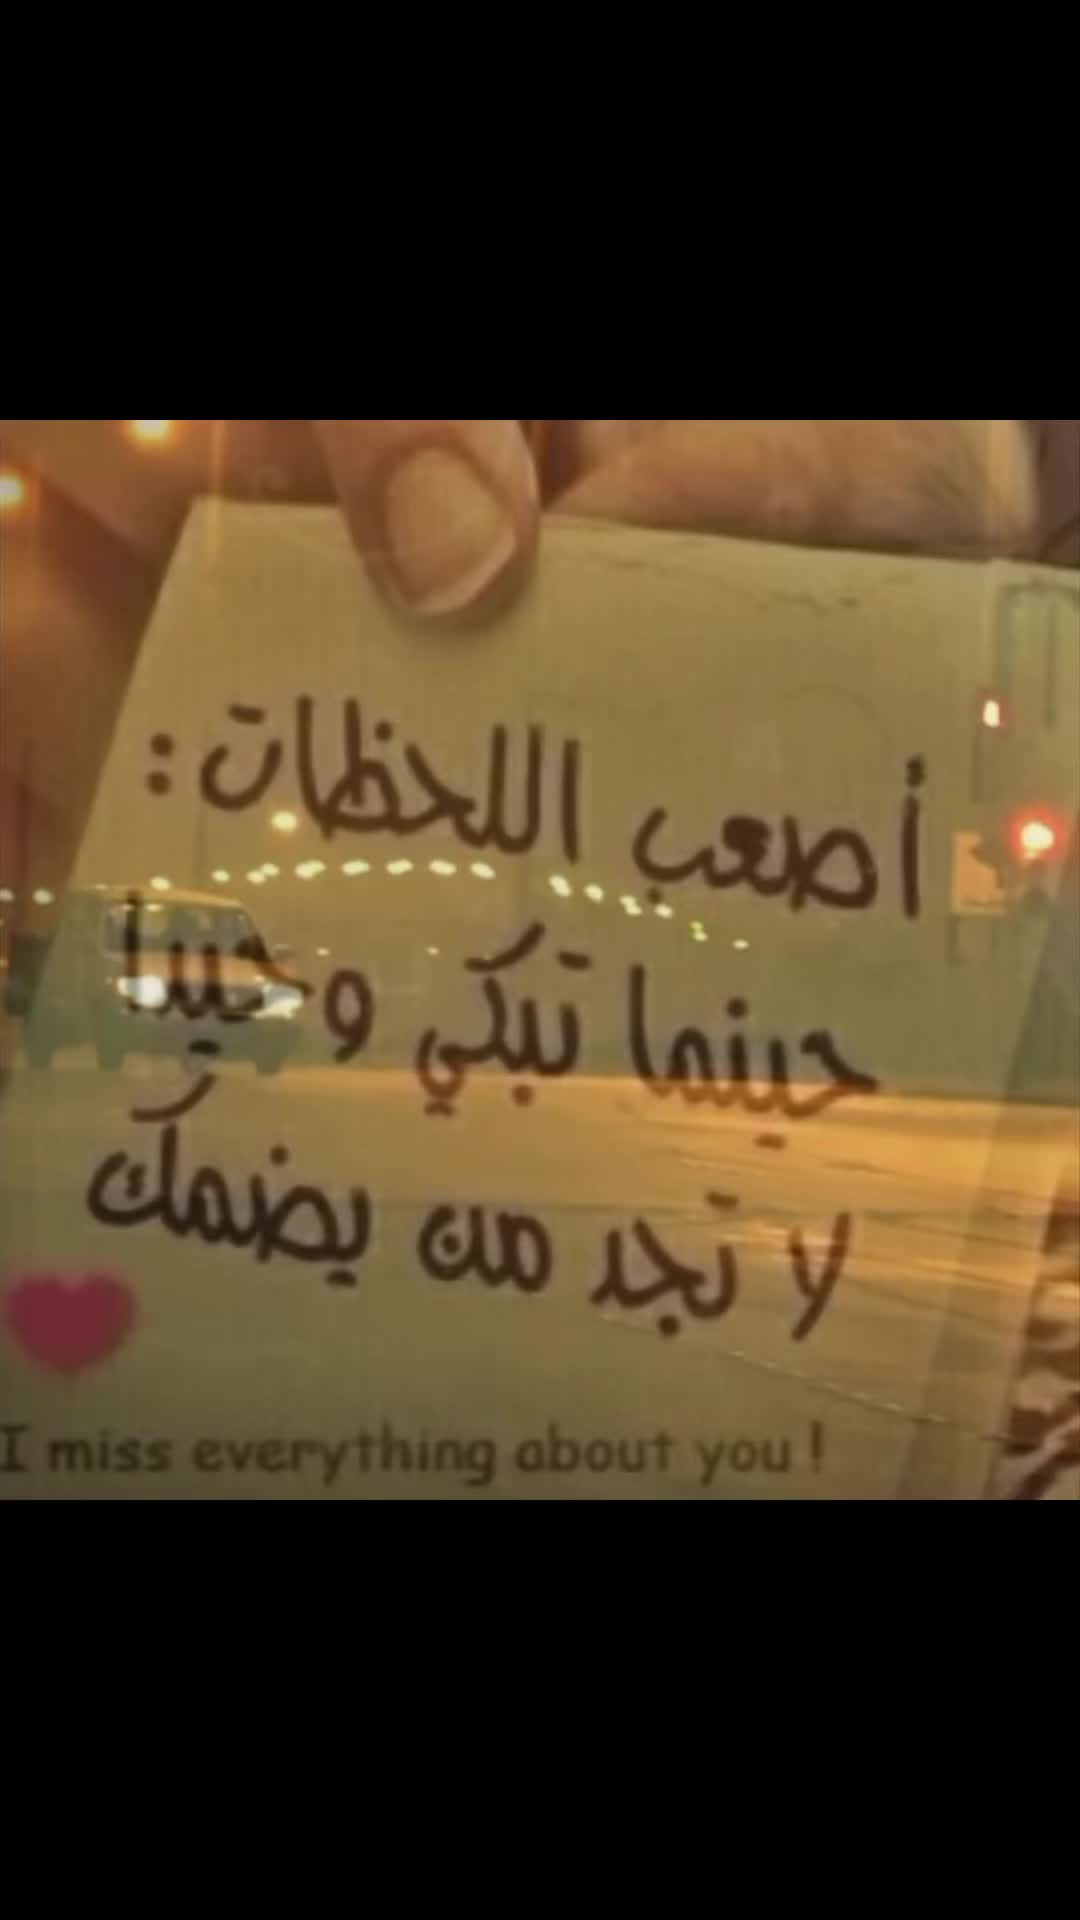 أصعب اللحظات :
حينما تبكي وحيدا
لا تجد من يضمك
I miss everything about you !